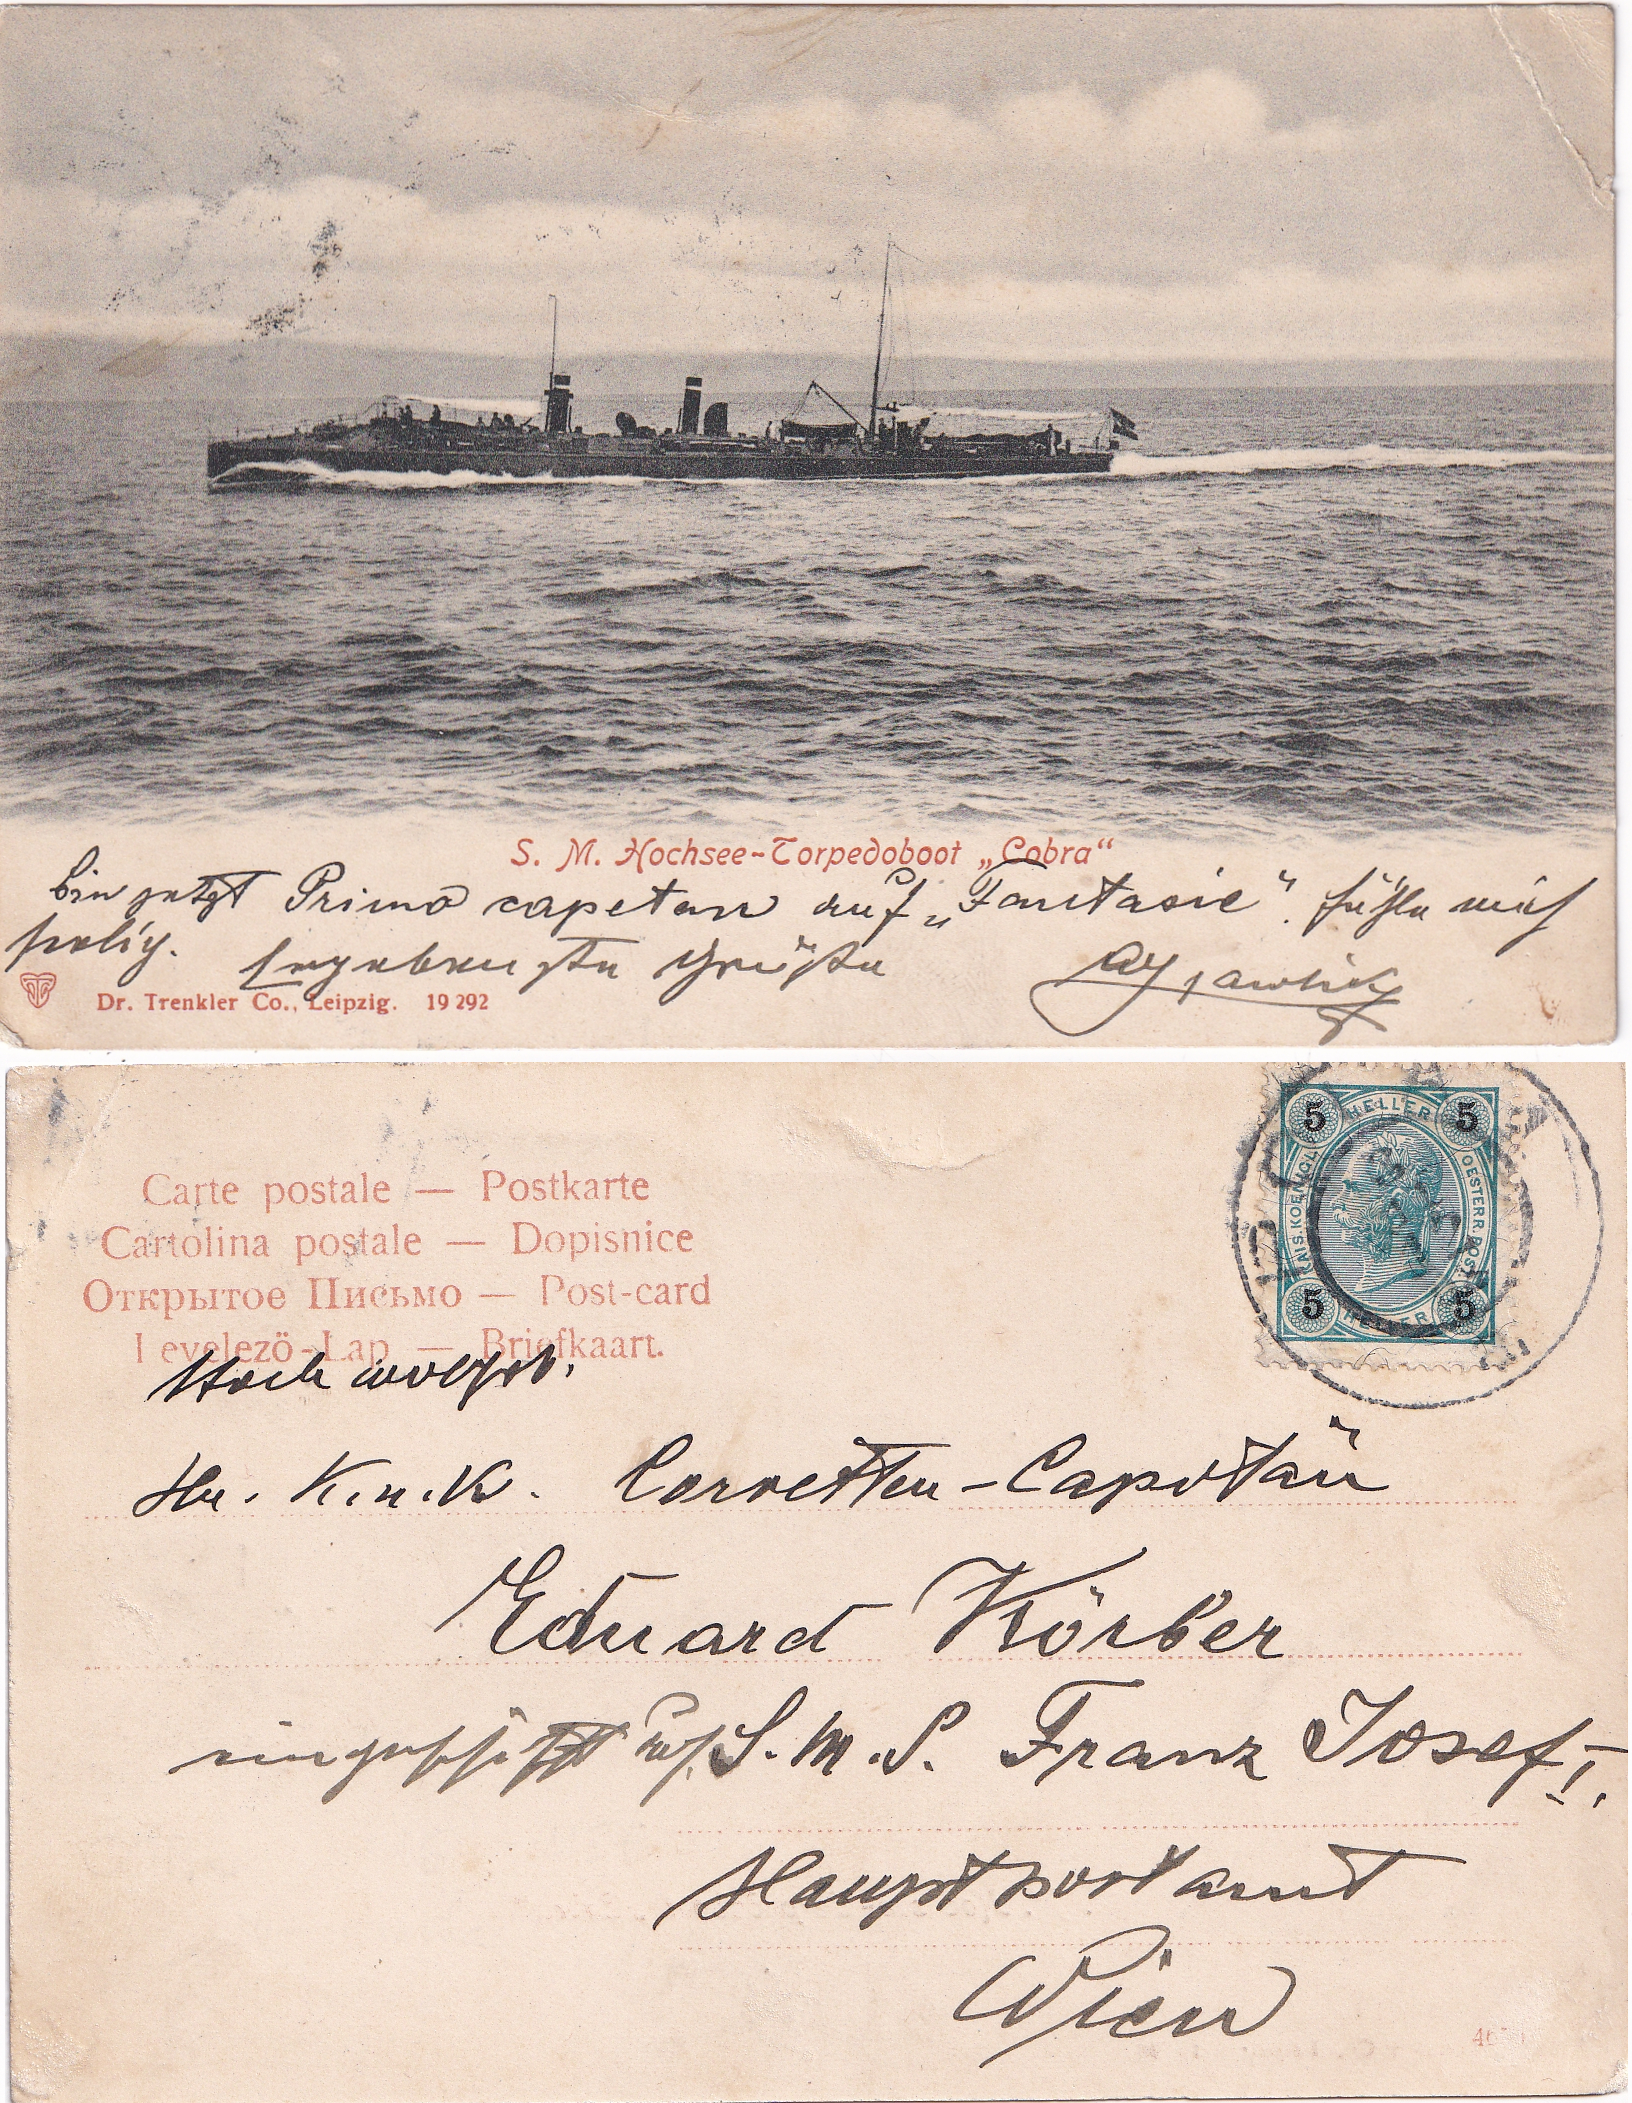 S. M. Hochsee-Torpedoboot „Cobra“
bin jetzt Primo capetan auf „Fantasie“. fühle mich
selig. Ergebenste Grüße
Dr. Trenkler Co., Leipzig. 19 292
Carte postale — Postkarte
Cartolina postale — Dopisnice
Открытое Письмо — Post-card
Levelező-Lap — Briefkaart.
5 HELLER 5
KAIS. KOENIGL. OESTERR. POST.
5 HELLER 5
Hochwolgeb.
Hr. K. u. K. Corvetten-Capitän
Eduard Körber
eingeschifft auf S. M. S. Franz Josef I.
Hauptpostamt
Wien